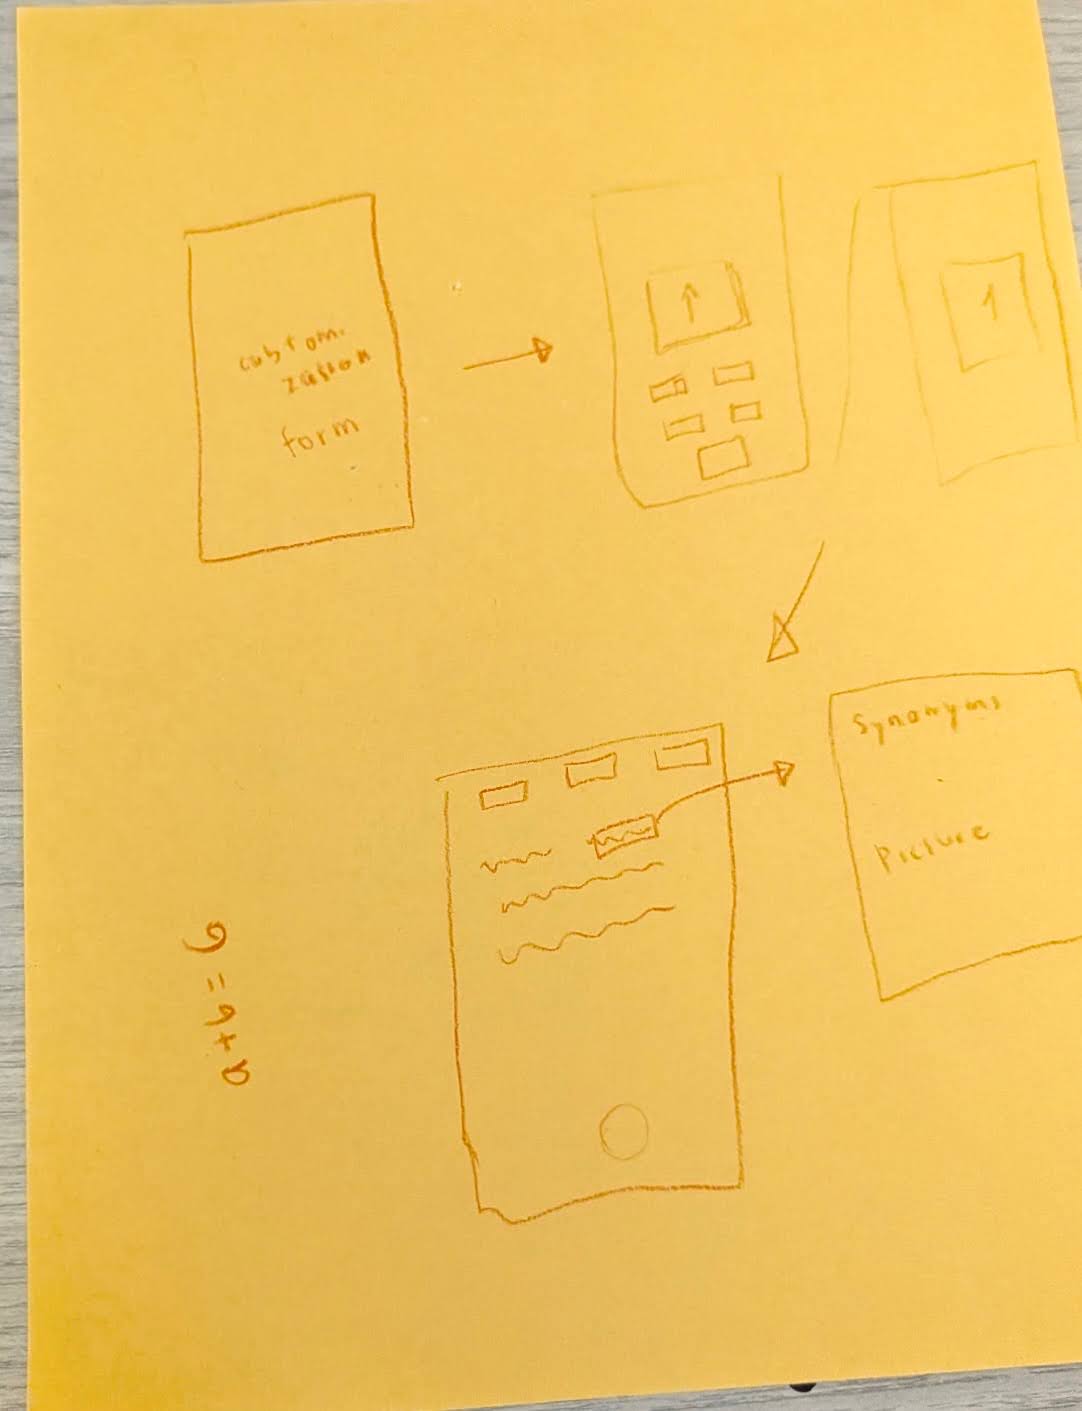 customi
zation
form
Synonyms
Picture